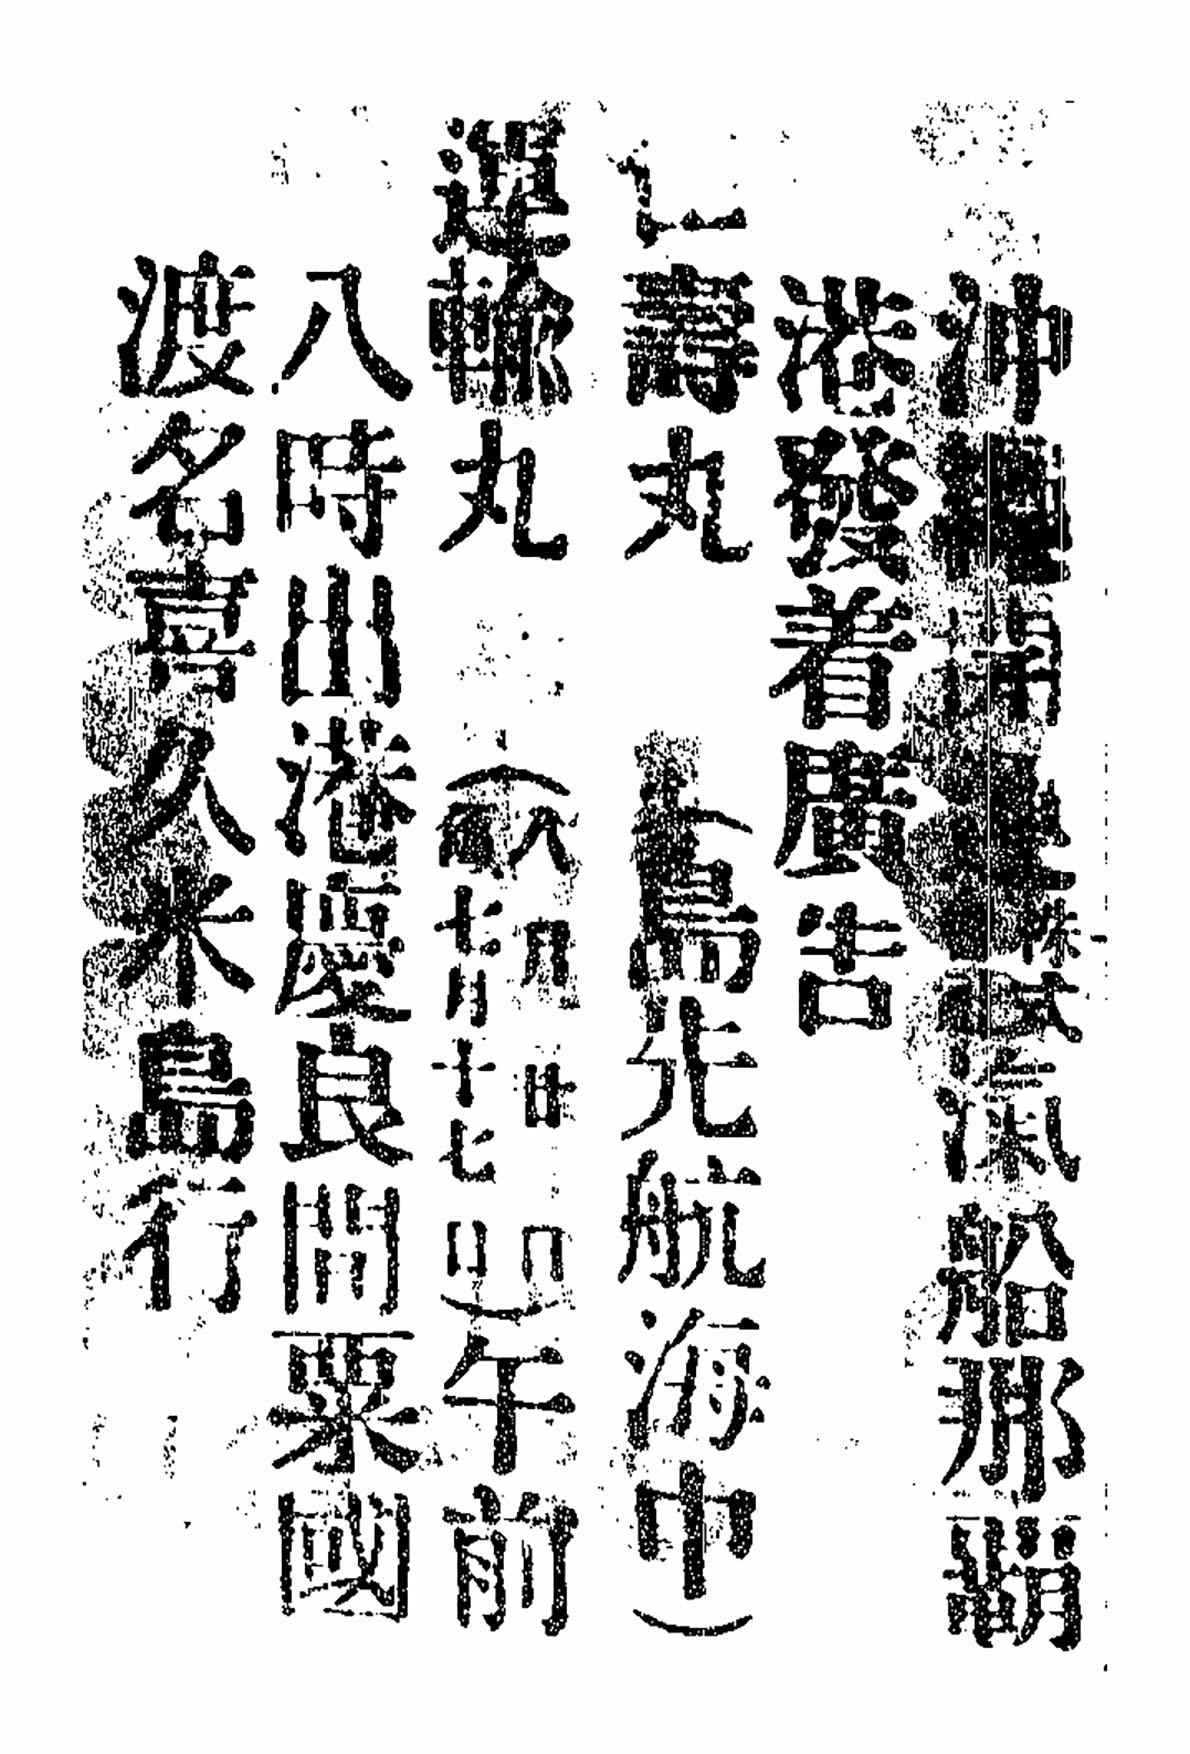 沖繩開運株式會社汽船那覇
港發着廣告
壽丸（島先航海中）
運輸丸（八月廿日
七月十七日）午前
八時出港慶良間粟國
渡名喜久米島行